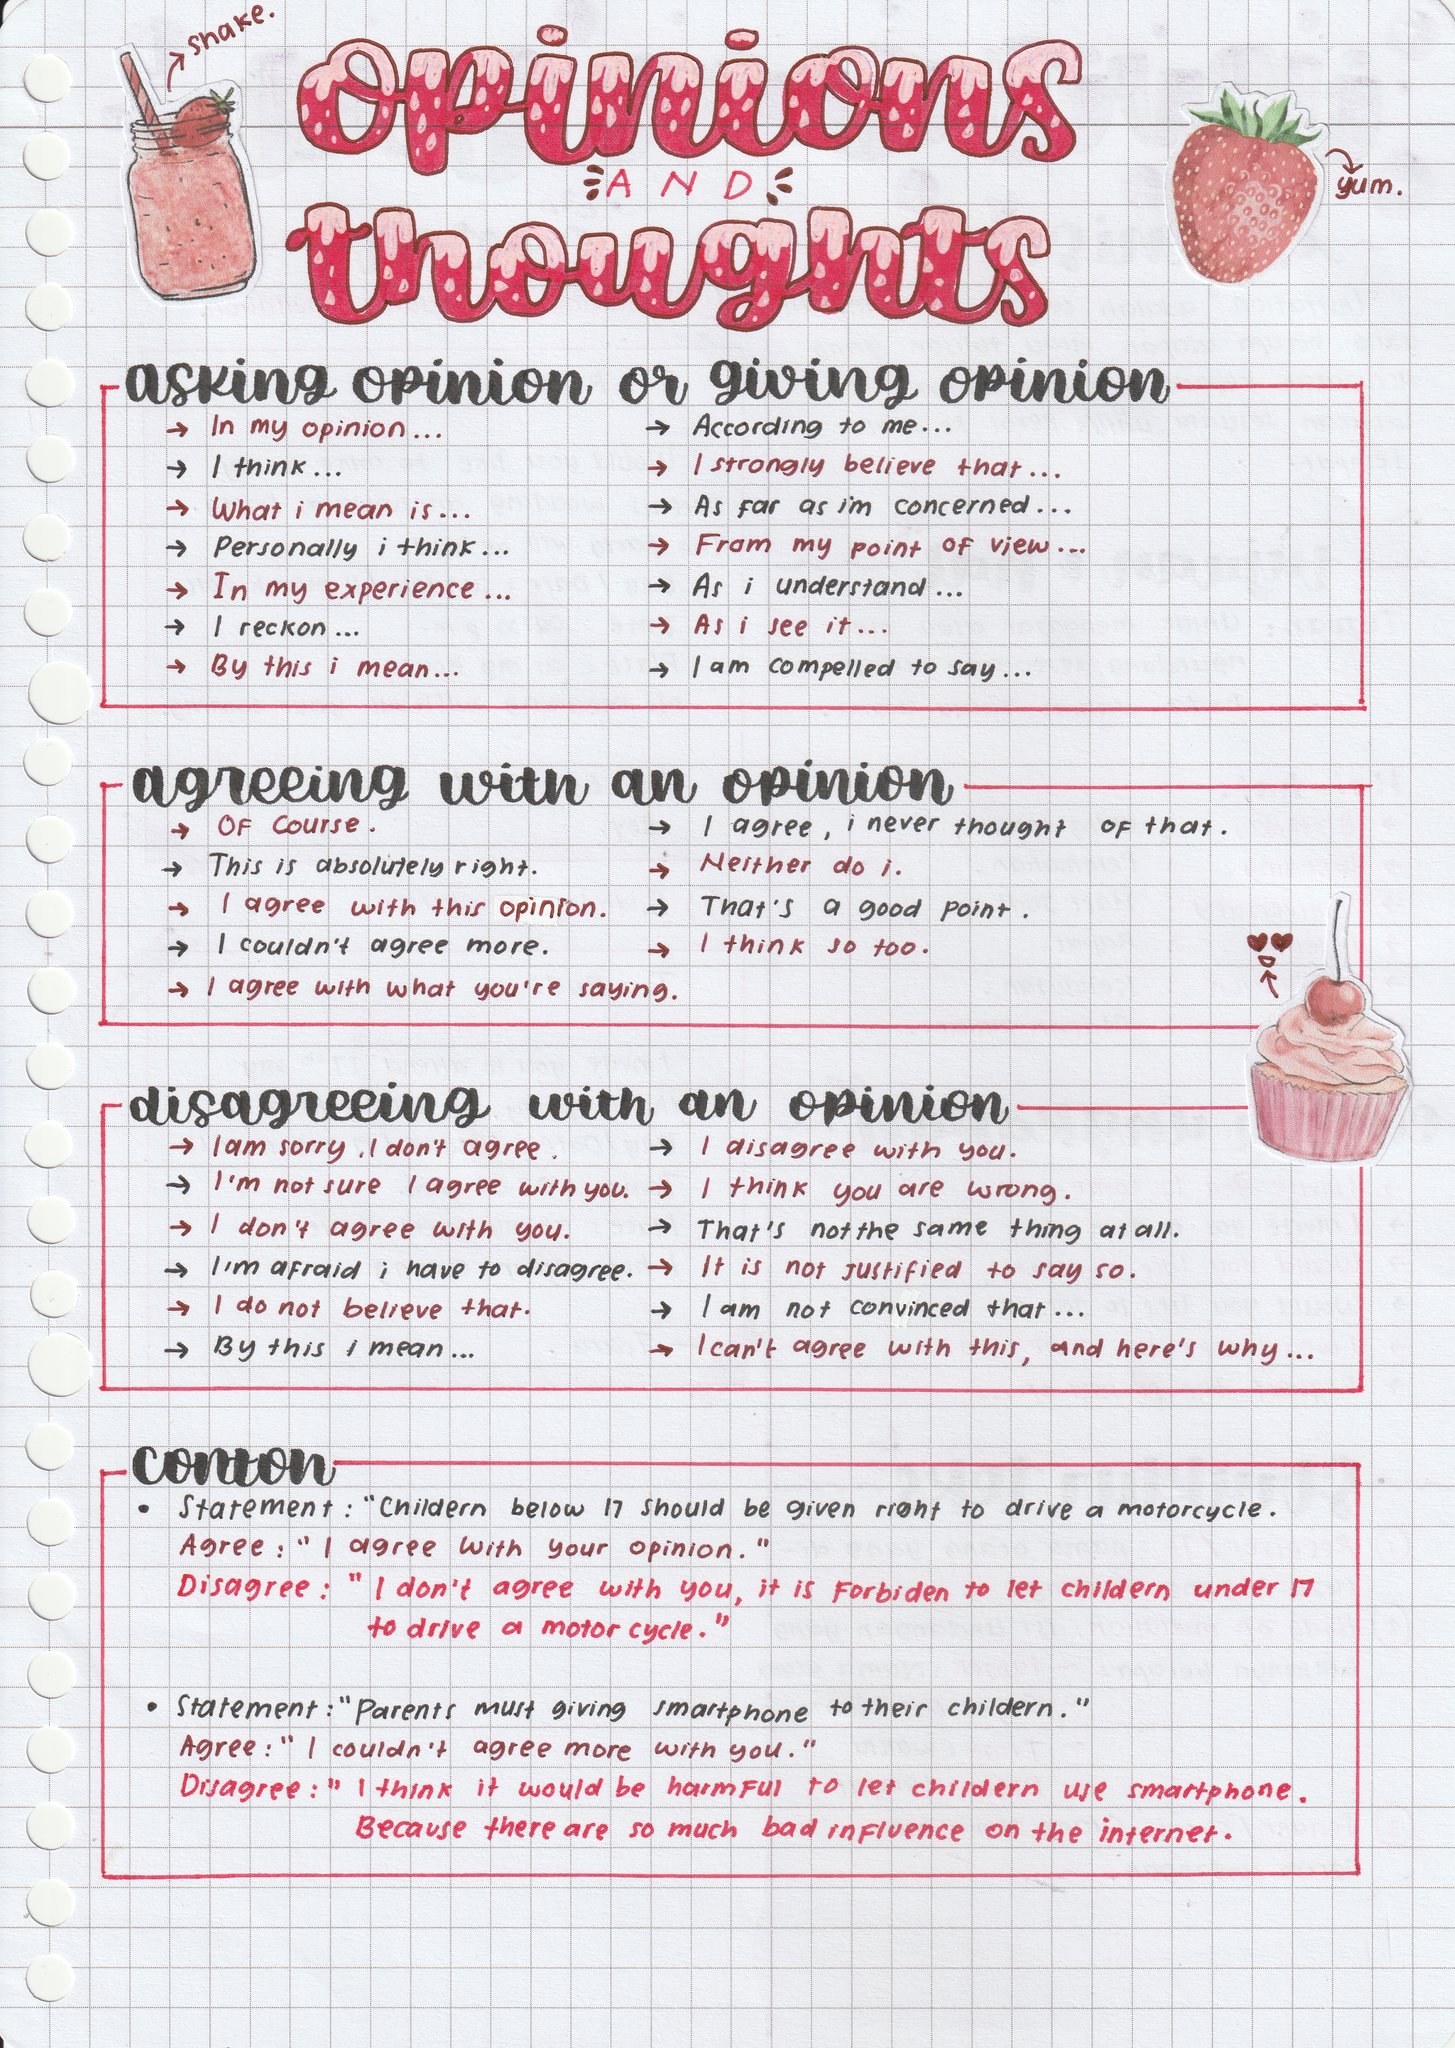 shake.
opinions
AND
thoughts
yum.
asking opinion or giving opinion
→ In my opinion...
→ I think...
→ What i mean is...
→ Personally i think...
→ In my experience...
→ I reckon...
→ By this i mean...
→ According to me...
→ I strongly believe that...
→ As far as i'm concerned...
→ Fram my point of view...
→ As i understand...
→ As i see it...
→ I am compelled to say...
agreeing with an opinion
→ Of course.
→ This is absolutely right.
→ I agree with this opinion.
→ I couldn't agree more.
→ I agree with what you're saying.
→ I agree, i never thought of that.
→ Neither do i.
→ That's a good point.
→ I think so too.
disagreeing with an opinion
→ I am sorry, I don't agree.
→ I'm not sure I agree with you.
→ I don't agree with you.
→ I'm afraid i have to disagree.
→ I do not believe that.
→ By this i mean...
→ I disagree with you.
→ I think you are wrong.
→ That's not the same thing at all.
→ It is not justified to say so.
→ I am not convinced that...
→ I can't agree with this, and here's why...
conton
• Statement : "Childern below 17 should be given right to drive a motorcycle.
Agree : " I agree with your opinion. "
Disagree : " I don't agree with you, it is forbiden to let childern under 17
to drive a motor cycle. "
• Statement : "Parents must giving smartphone to their childern. "
Agree : " I couldn't agree more with you. "
Disagree : " I think it would be harmful to let childern use smartphone.
Because there are so much bad influence on the internet.